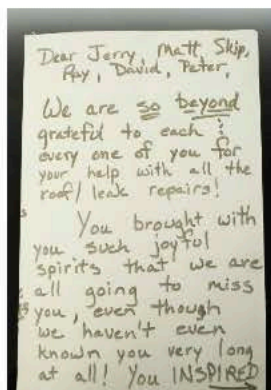 Dear Jerry, Matt, Skip,
Ray, David, Peter,
We are so beyond
grateful to each &
every one of you for
your help with all the
roof/leak repairs!
You brought with
you such joyful
spirits that we are
all going to miss
you, even though
we haven't even
known you very long
at all! You INSPIRED